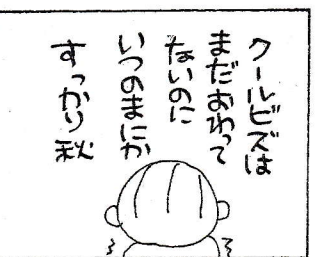 クールビズは
まだおわって
ないのに
いつのまにか
すっかり秋